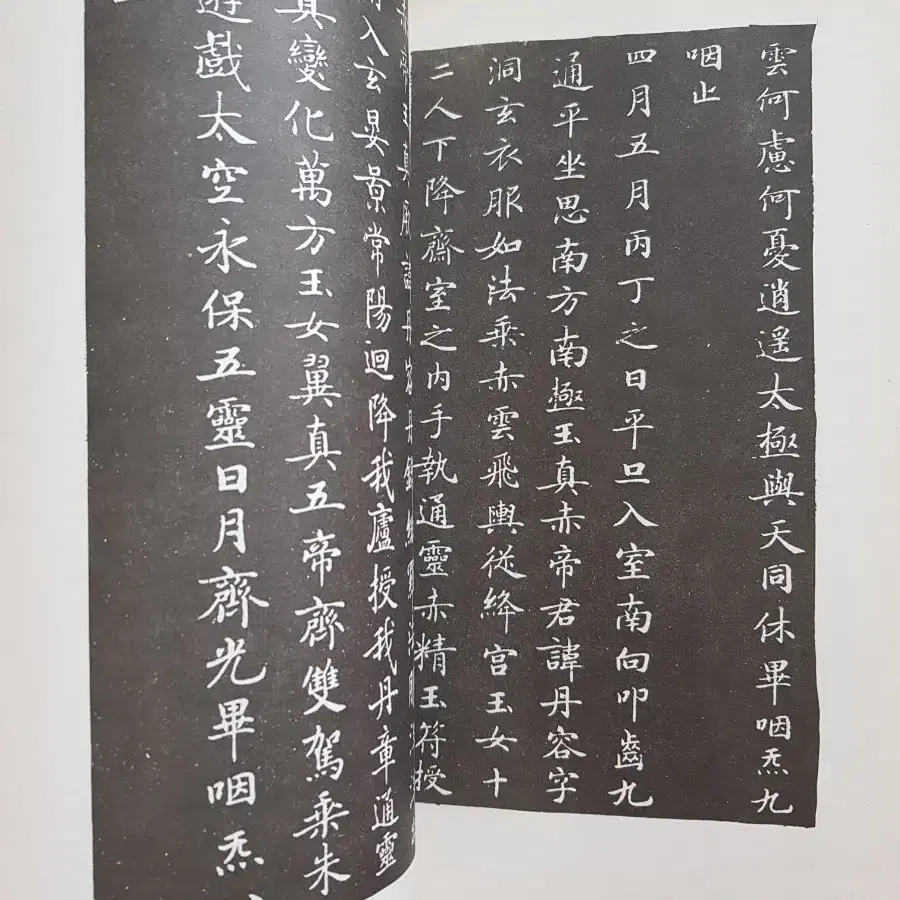 雲何慮何憂逍遥太極與天同休畢咽炁九
咽止
四月五月丙丁之日平旦入室南向叩齒九
通平坐思南方南極玉真赤帝君諱丹容字
洞玄衣服如法乘赤雲飛輿從絳宫玉女十
二人下降齋室之内手執通靈赤精玉符授
真厥諱丹容丹錦
入玄晏景常陽迴降我廬授我丹章通靈
真變化萬方玉女翼真五帝齊雙駕乘朱
遊戲太空永保五靈日月齊光畢咽炁